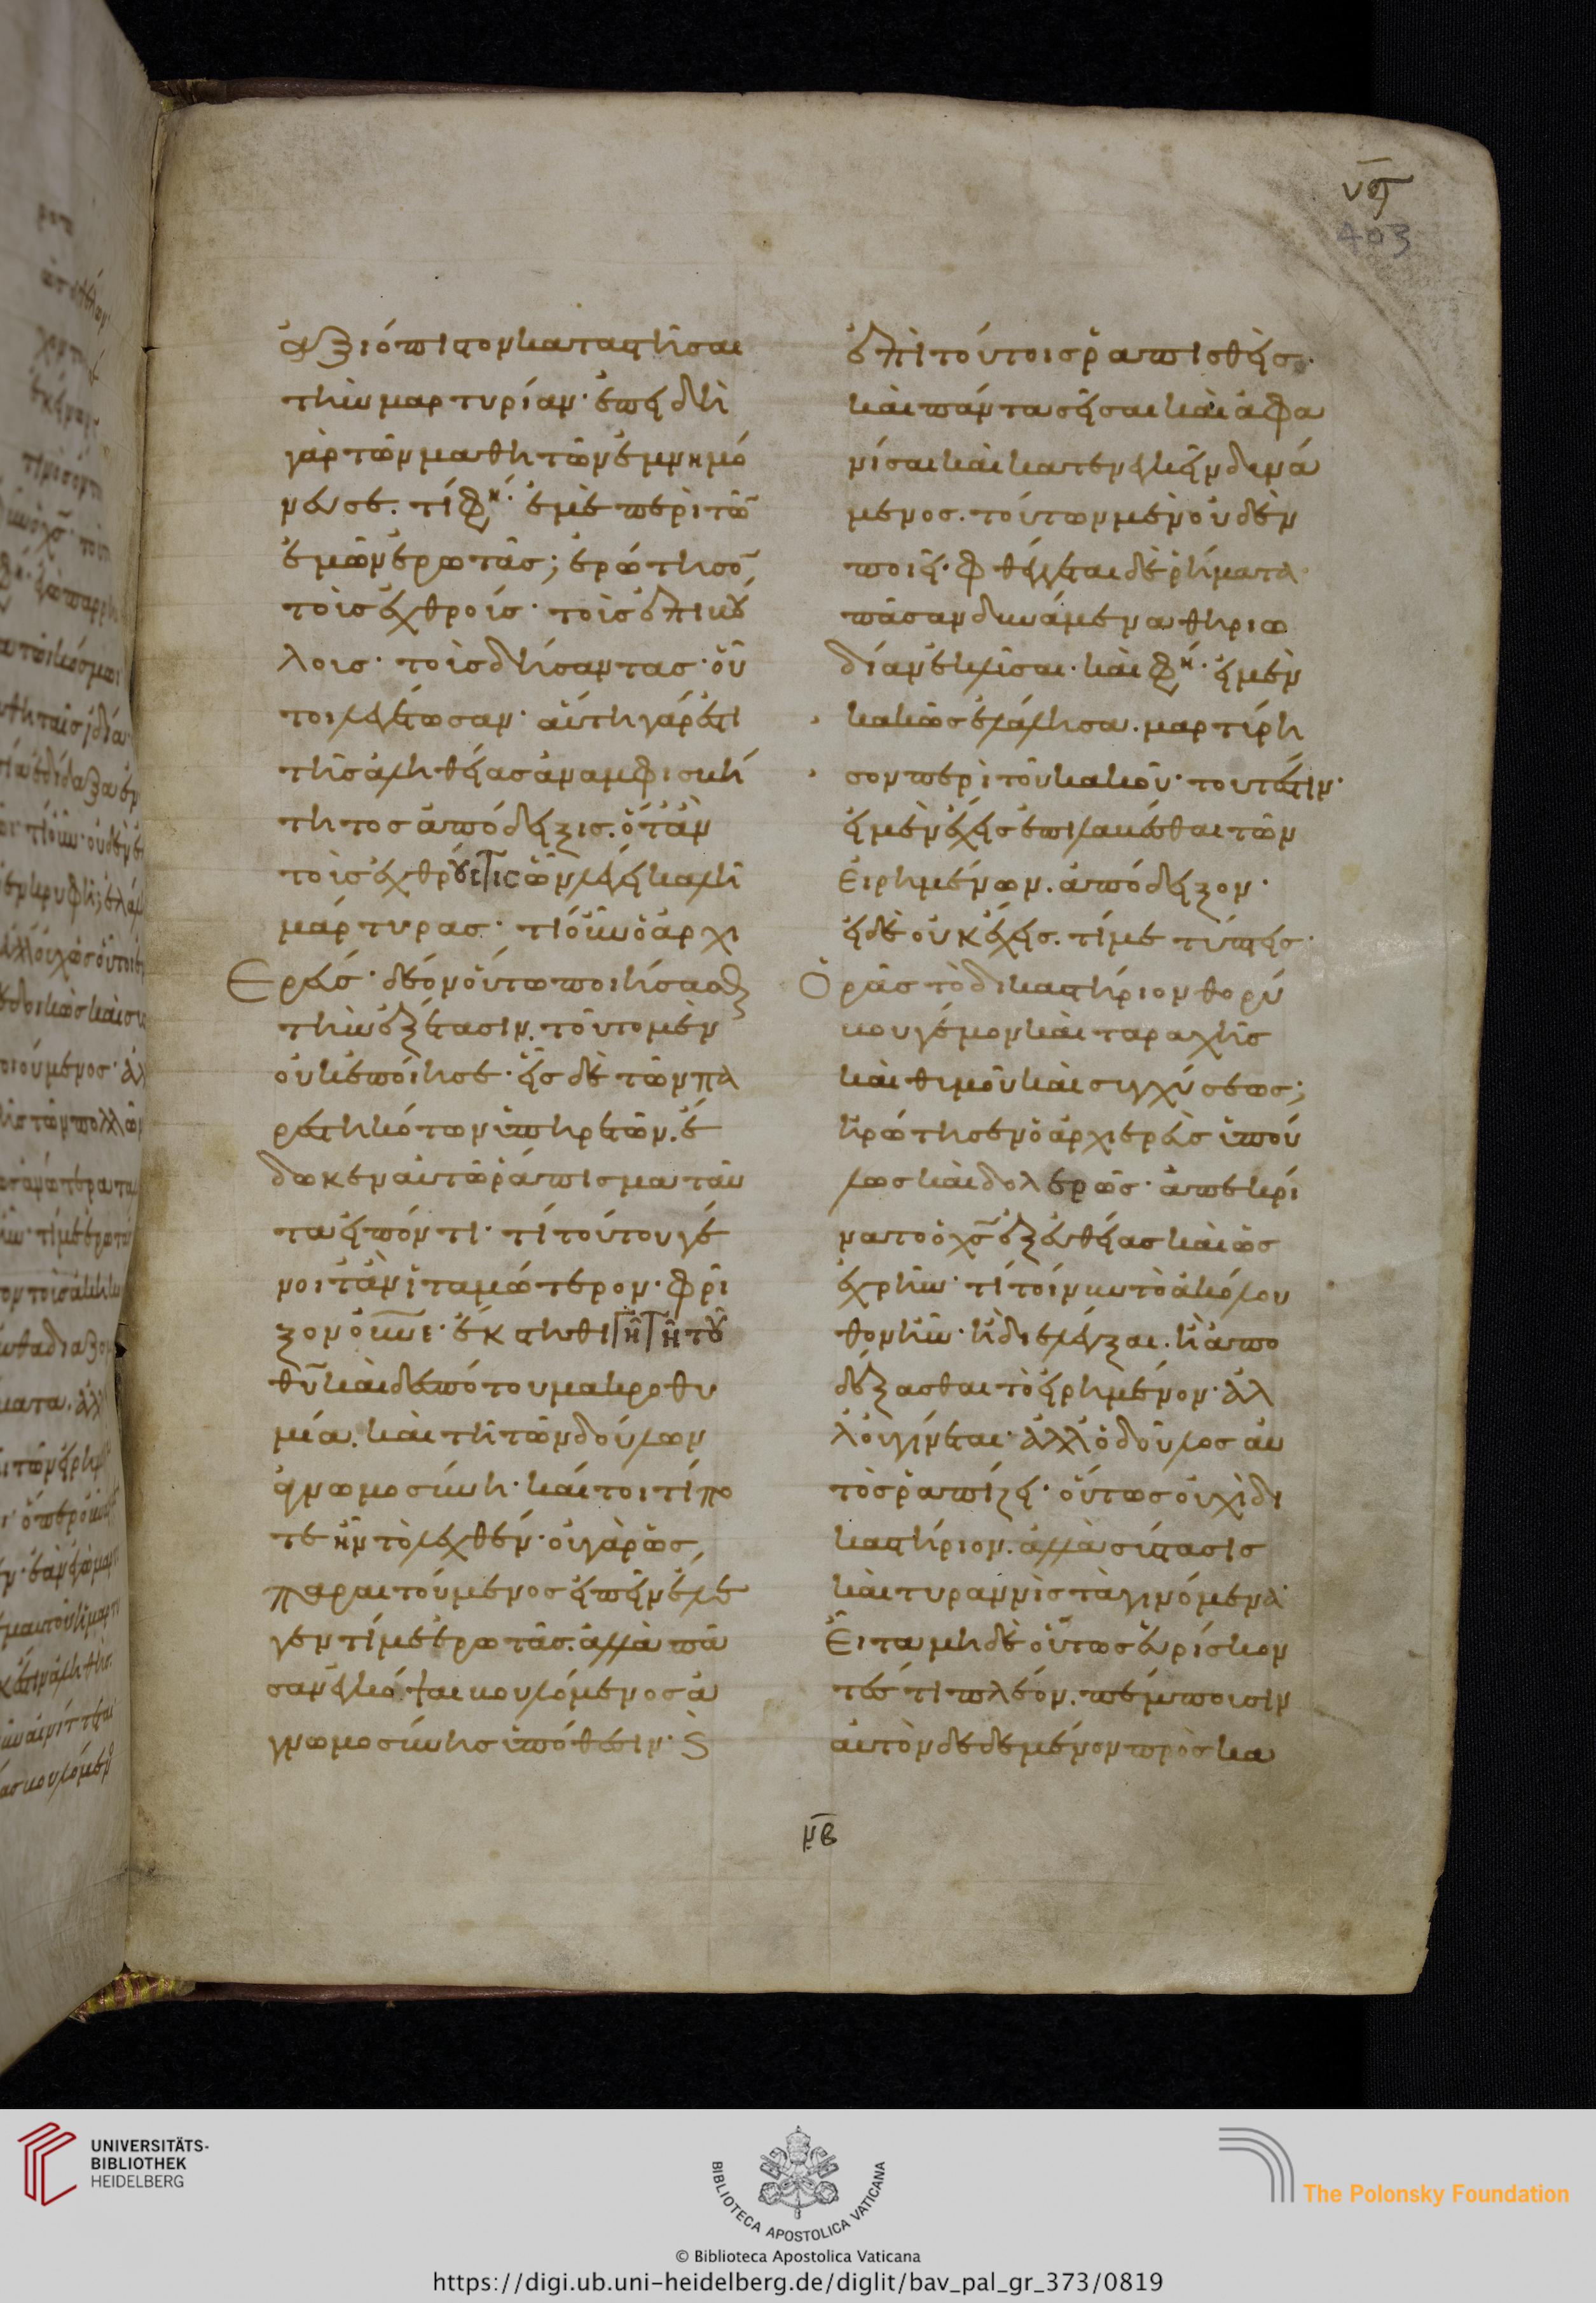 νϛ
403
ἀξιόπιστον καταστῆσαι
τὴν μαρτυρίαν· ἐπειδὴ
γὰρ τῶν μαθητῶν ἐμνημό
νευσε. τί φη· ἐμὲ περὶ τῶ
ἐμῶν ἐρωτᾶς; ἐρώτησο
τοὺς ἐχθρούς· τοὺς ἐπιβού
λους· τοὺς δήσαντας· οὗ
τοι λεγέτωσαν· αὕτη γάρ ἐστι
τῆς ἀληθείας ἀναμφισβή
τητος ἀπόδειξις. ὅτ' ἂν
τοὺς ἐχθρούς τις ὧν λέγει καλῆ
μάρτυρας· τί οὖν ὁ ἀρχι
Ερεύς· δέον οὕτω ποιήσασθαι
τὴν ἐξέτασιν. τοῦτο μὲν
οὐκ ἐποίησε· εἷς δὲ τῶν πα
ρεστηκότων ὑπηρετῶν. ἔ
δωκεν αὐτῶ ῥάπισμα ταῦ
τα εἰπόντι· τί τούτου γέ
νοιτ' ἂν ἰταμώτερον· φρί
ξον οὐνε· ἔκστηθι γῆ τῆ τοῦ
θυ καὶ δεσπότου μακροθυ
μία. καὶ τῆ τῶν δούλων
ἀγνωμοσύνη· καίτοι τί πο
τε ἦν τὸ λεχθέν· οὐ γὰρ ὡς
παραιτούμενος εἰπεῖν ἔλε
γεν τί με ἐρωτᾶς. ἀλλὰ πᾶ
σαν ἐκκόψαι βουλόμενος ἀ
γνωμοσύνης ὑπόθεσιν· ϗ
ἐπὶ τούτοις ῥαπισθεὶς.
καὶ πάντα σεῖσαι καὶ ἀφα
νίσαι καὶ κατενεγκεῖν δυνά
μενος. τούτων μὲν οὐδὲν
ποιεῖ· φθέγγεται δὲ ῥήματα
πᾶσαν δυνάμενα θηριω
δίαν ἐκλῦσαι· καὶ φη· εἰ μὲν
κακῶς ἐλάλησα. μαρτύρη
σον περὶ τοῦ κακοῦ· τουτέστιν·
εἰ μὲν ἔχεις ἐπιλαβέσθαι τῶν
Εἰρημένων. ἀπόδειξον·
εἰ δὲ οὐκ ἔχεις. τί με τύπτεις·
Ὁρᾶς τὸ δικαστήριον θορύ
βου γέμον καὶ ταραχῆς
καὶ θυμοῦ καὶ συγχύσεως;
ἠρώτησεν ὁ ἀρχιερεὺς ὑπού
λως καὶ δολερῶς· ἀπεκρί
νατο ὁ χς ἐξ εὐθείας καὶ ὡς
ἐχρῆν· τί τοίνυν τὸ ἀκόλου
θον ἦν· ἢ διελέγξαι. ἢ ἀπο
δέξασθαι τὸ εἰρημένον· ἀλ
λ' οὐ γίνεται· ἀλλ' ὁ δοῦλος αὐ
τὸς ῥαπίζει· οὕτως οὐχὶ δι
καστήριον. ἀλλὰ σύστασις
καὶ τυραννὶς τὰ γινόμενα·
Εἶτα μηδὲ οὕτως εὑρίσκον
τές τι πλέον. πέμπουσιν
αὐτὸν δεδεμένον πρὸς κα
νβ
UNIVERSITÄTS-
BIBLIOTHEK
HEIDELBERG
BIBLIOTECA APOSTOLICA VATICANA
The Polonsky Foundation
© Biblioteca Apostolica Vaticana
https://digi.ub.uni-heidelberg.de/diglit/bav_pal_gr_373/0819